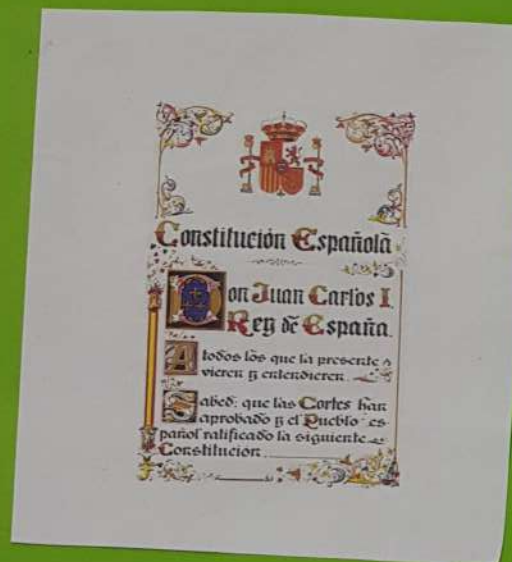 Constitución Española
Don Juan Carlos I
Rey de España.
A todos los que la presente
vieren y entendieren
Sabed: que las Cortes han
aprobado y el Pueblo es-
pañol ratificado la siguiente
Constitución